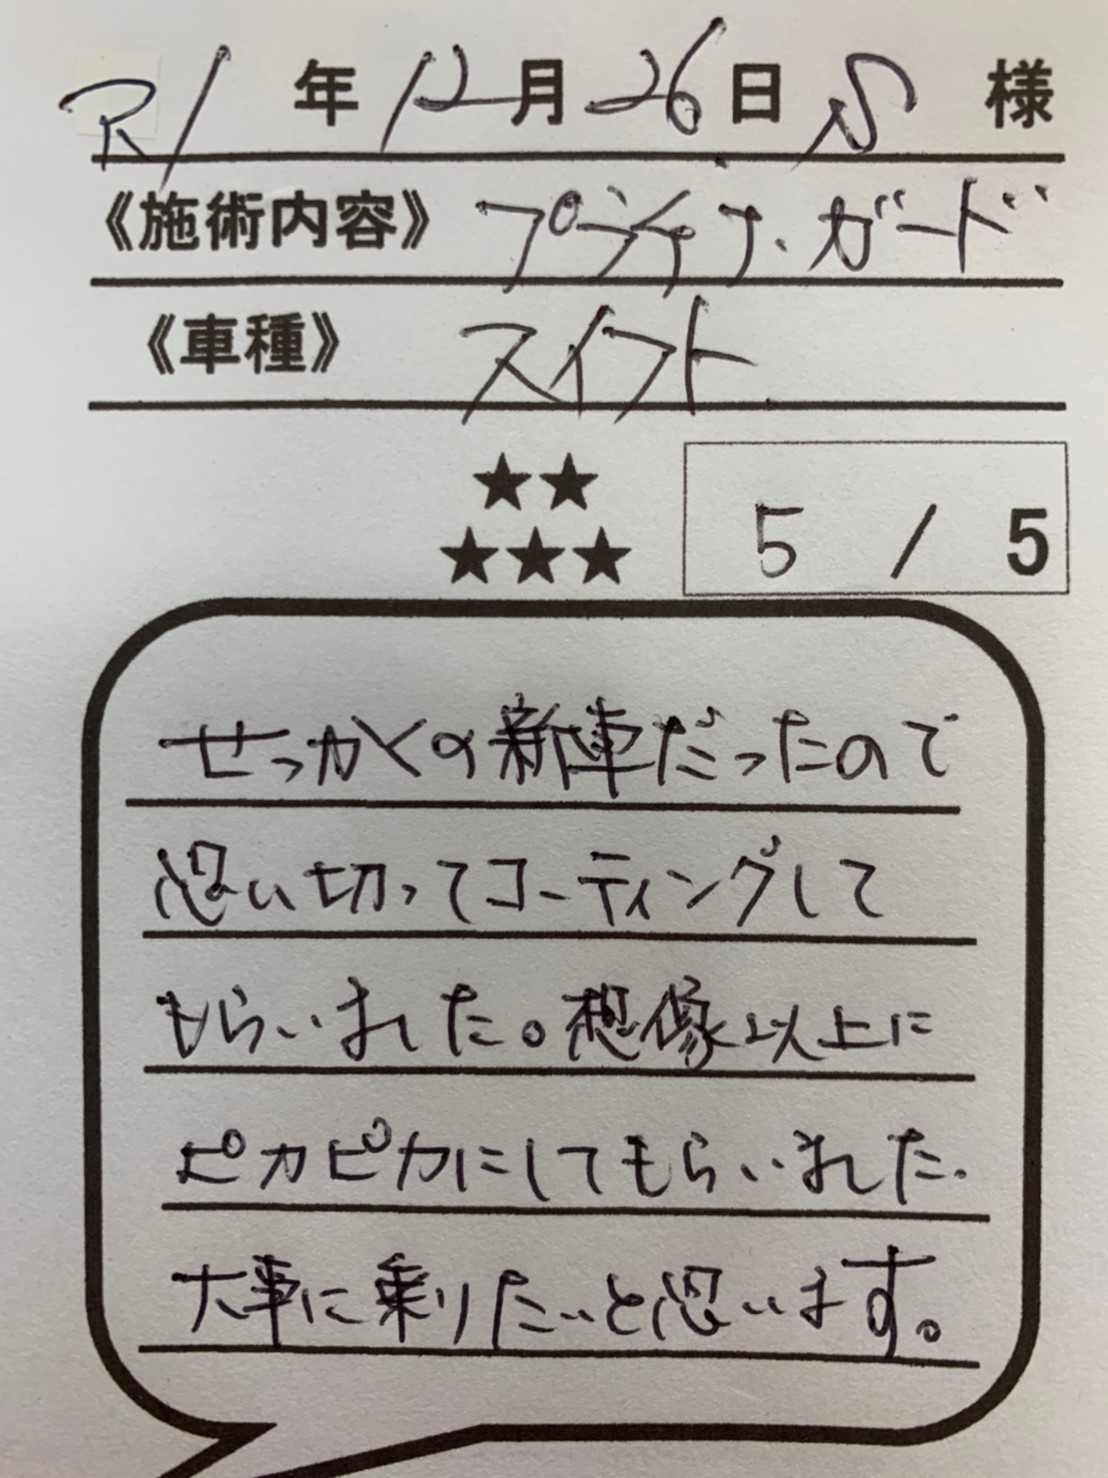 R1 年 12月 26日 S 様
《施術内容》 プラチナ・ガード
《車種》 スイフト
★★
★★★ 5 / 5
せっかくの新車だったので
思い切ってコーティングして
もらいました。想像以上に
ピカピカにしてもらいました.
大事に乗りたいと思います。